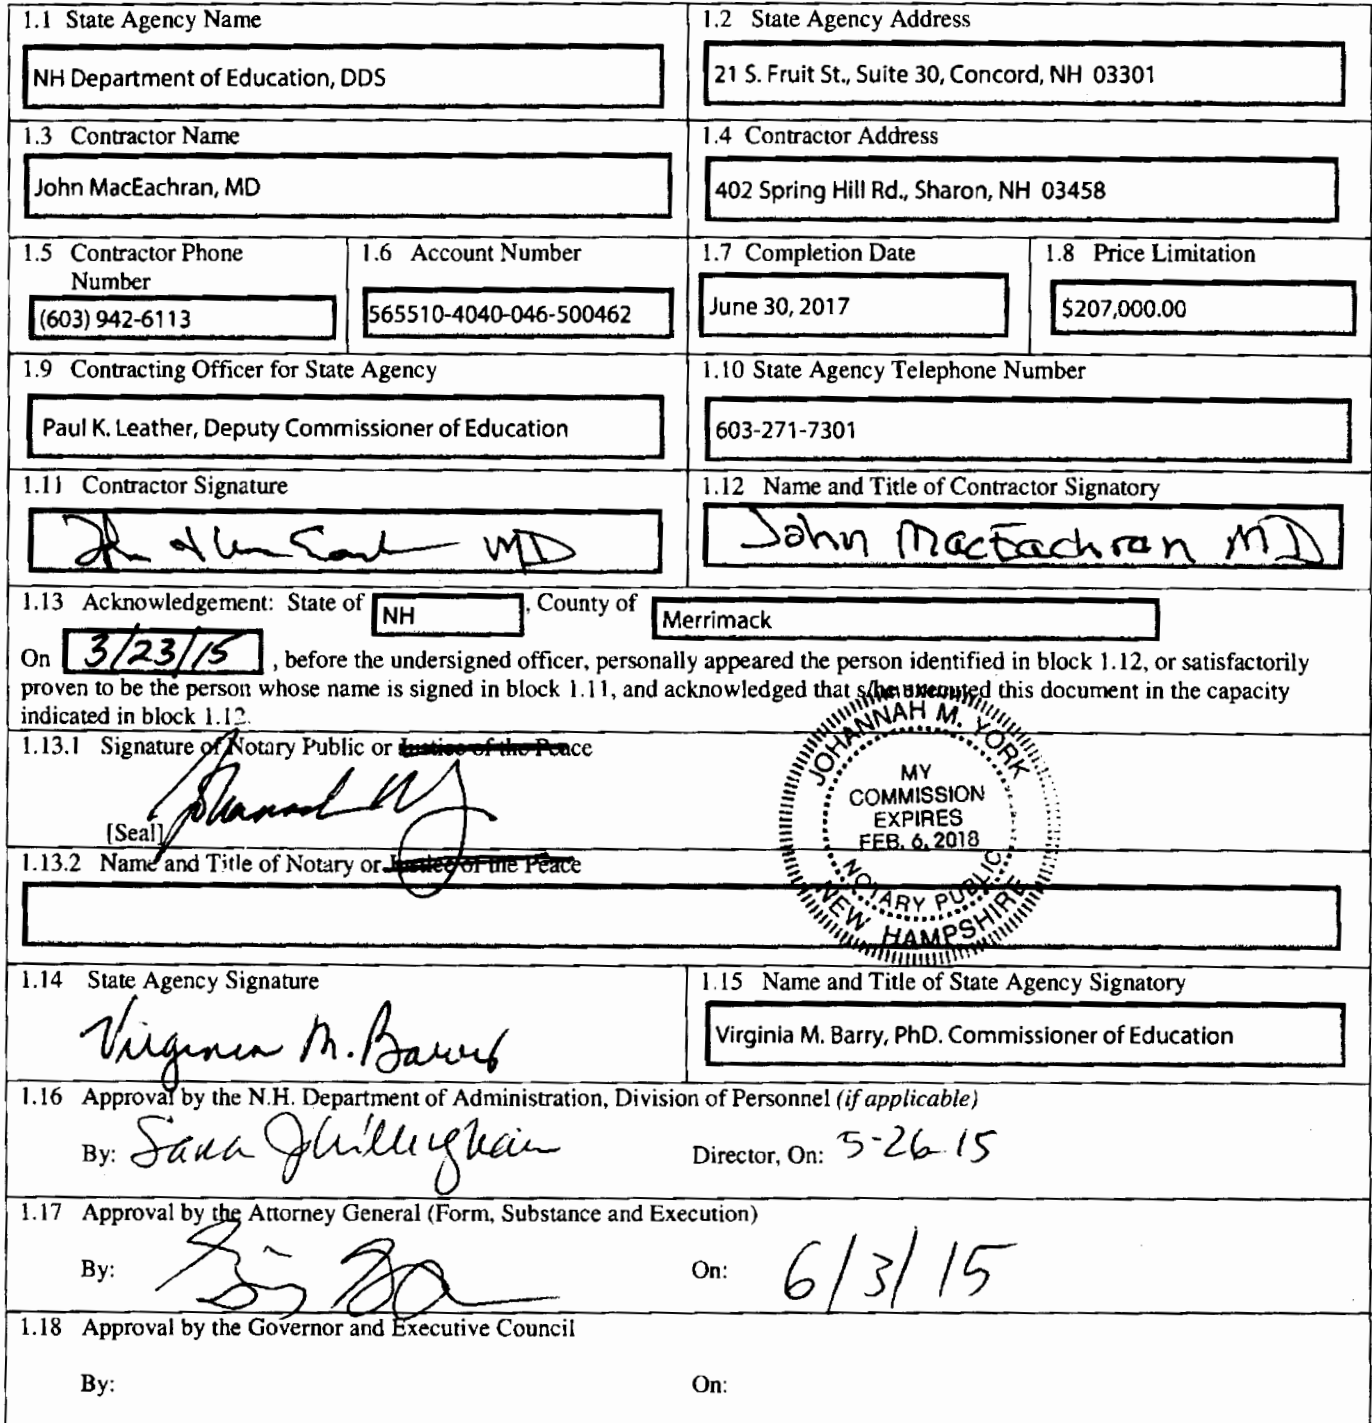 1.1 State Agency Name
NH Department of Education, DDS
1.2 State Agency Address
21 S. Fruit St., Suite 30, Concord, NH 03301
1.3 Contractor Name
John MacEachran, MD
1.4 Contractor Address
402 Spring Hill Rd., Sharon, NH 03458
1.5 Contractor Phone
Number
(603) 942-6113
1.6 Account Number
565510-4040-046-500462
1.7 Completion Date
June 30, 2017
1.8 Price Limitation
$207,000.00
1.9 Contracting Officer for State Agency
Paul K. Leather, Deputy Commissioner of Education
1.10 State Agency Telephone Number
603-271-7301
1.11 Contractor Signature
MD
1.12 Name and Title of Contractor Signatory
John MacEachran MD
1.13 Acknowledgement: State of NH , County of Merrimack
On 3/23/15 , before the undersigned officer, personally appeared the person identified in block 1.12, or satisfactorily
proven to be the person whose name is signed in block 1.11, and acknowledged that s/he executed this document in the capacity
indicated in block 1.12.
1.13.1 Signature of Notary Public or Justice of the Peace
[Seal]
JOHANNAH M. YORK
MY
COMMISSION
EXPIRES
FEB. 6, 2018
NOTARY PUBLIC
NEW HAMPSHIRE
1.13.2 Name and Title of Notary or Justice of the Peace
1.14 State Agency Signature
Virginia M. Barry
1.15 Name and Title of State Agency Signatory
Virginia M. Barry, PhD. Commissioner of Education
1.16 Approval by the N.H. Department of Administration, Division of Personnel (if applicable)
By: Sara J Willingham
Director, On: 5-26-15
1.17 Approval by the Attorney General (Form, Substance and Execution)
By:
On: 6/3/15
1.18 Approval by the Governor and Executive Council
By:
On: